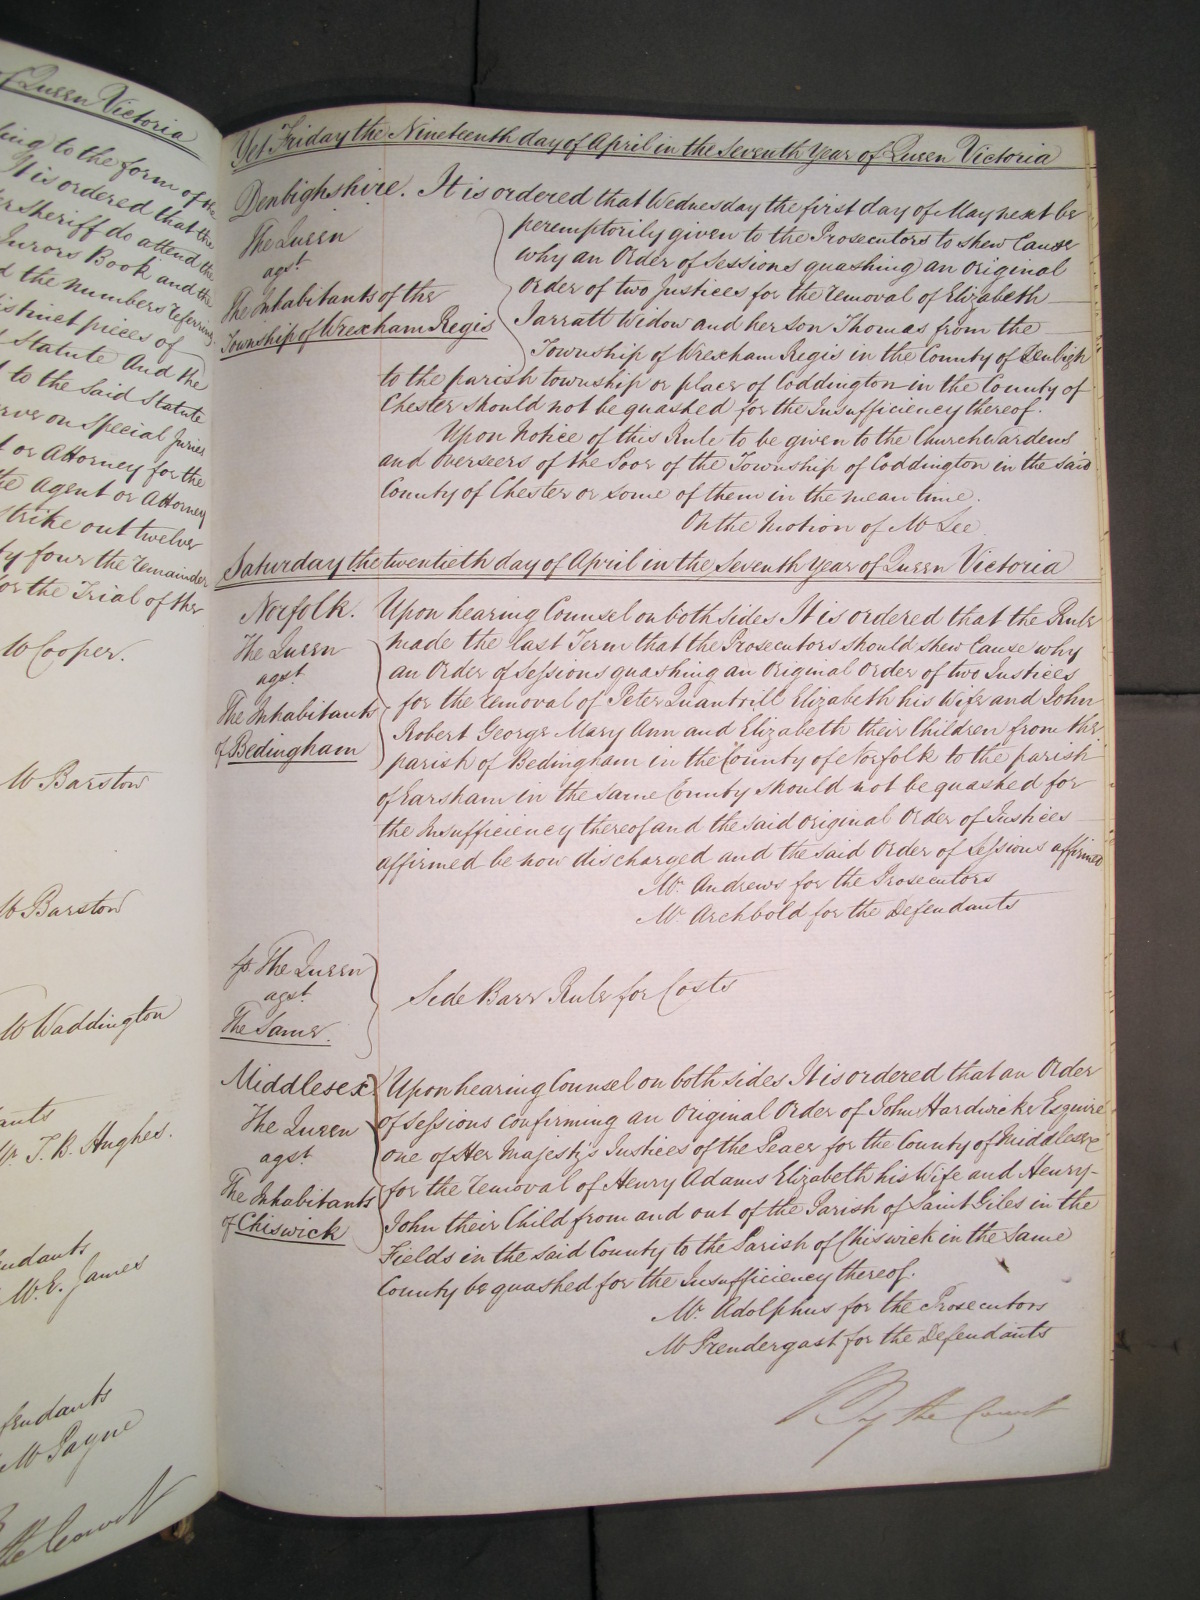 of Queen Victoria
to the form of the
It is ordered that the
Sheriff do attend the
Jurors Book and the
the numbers referring
distinct pieces of
Statute And the
to the said Statute
on Special Juries
or Attorney for the
the Agent or Attorney
strike out twelve
four the remainder
for the Trial of the
Mr Cooper.
Mr Barston
Mr Barston
Mr Waddington
Mr T. B. Hughes.
Mr E. James
Mr Payne
the Court
Yet Friday the Nineteenth day of April in the Seventh Year of Queen Victoria
Denbighshire. It is ordered that Wednesday the first day of May next be
The Queen
agst
The Inhabitants of the
Township of Wrexham Regis
peremptorily given to the Prosecutors to shew Cause
why an Order of Sessions quashing an Original
Order of two Justices for the removal of Elizabeth
Jarratt Widow and her son Thomas from the
Township of Wrexham Regis in the County of Denbigh
to the parish township or place of Coddington in the County of
Chester should not be quashed for the Insufficiency thereof.
Upon Notice of this Rule to be given to the Churchwardens
and Overseers of the Poor of the Township of Coddington in the said
County of Chester or some of them in the mean time.
On the Motion of Mr Lee
Saturday the twentieth day of April in the Seventh Year of Queen Victoria
Norfolk.
The Queen
agst
The Inhabitants
of Bedingham
Upon hearing Counsel on both sides It is ordered that the Rule
made the last Term that the Prosecutors should shew Cause why
an Order of Sessions quashing an Original Order of two Justices
for the removal of Peter Quantrill Elizabeth his Wife and John
Robert George Mary Ann and Elizabeth their Children from the
parish of Bedingham in the County of Norfolk to the parish
of Earsham in the same County should not be quashed for
the Insufficiency thereof and the said original Order of Justices
affirmed be now discharged and the said Order of Sessions affirmed
Mr. Andrews for the Prosecutors
Mr. Archbold for the Defendants
The Queen
agst
The Same.
Side Barr Rule for Costs
Middlesex
The Queen
agst
The Inhabitants
of Chiswick
Upon hearing Counsel on both sides It is ordered that an Order
of Sessions confirming an Original Order of John Hardwicke Esquire
one of Her Majesty's Justices of the Peace for the County of Middlesex
for the removal of Henry Adams Elizabeth his Wife and Henry
John their Child from and out of the Parish of Saint Giles in the
Fields in the said County to the Parish of Chiswick in the same
County be quashed for the Insufficiency thereof.
Mr. Adolphus for the Prosecutors
Mr Prendergast for the Defendants
By the Court